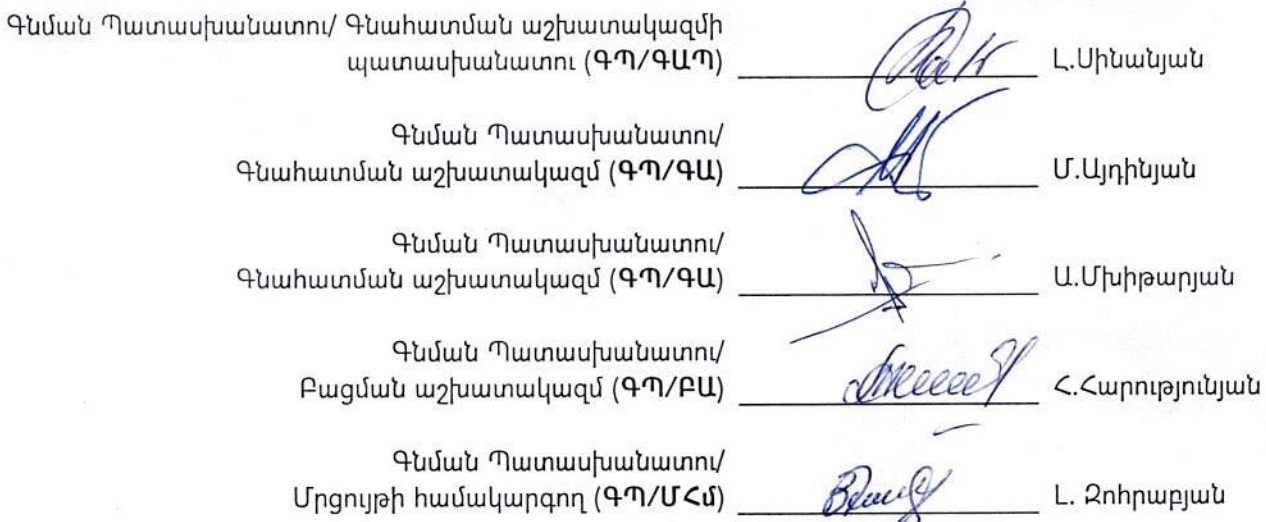 Գնման Պատասխանատու/ Գնահատման աշխատակազմի
պատասխանատու (ԳՊ/ԳԱՊ) Լ.Սինանյան
Գնման Պատասխանատու/
Գնահատման աշխատակազմ (ԳՊ/ԳԱ) Մ.Այդինյան
Գնման Պատասխանատու/
Գնահատման աշխատակազմ (ԳՊ/ԳԱ) Ա.Մխիթարյան
Գնման Պատասխանատու/
Բացման աշխատակազմ (ԳՊ/ԲԱ) Հ.Հարությունյան
Գնման Պատասխանատու/
Մրցույթի համակարգող (ԳՊ/ՄՀմ) Լ. Զոհրաբյան